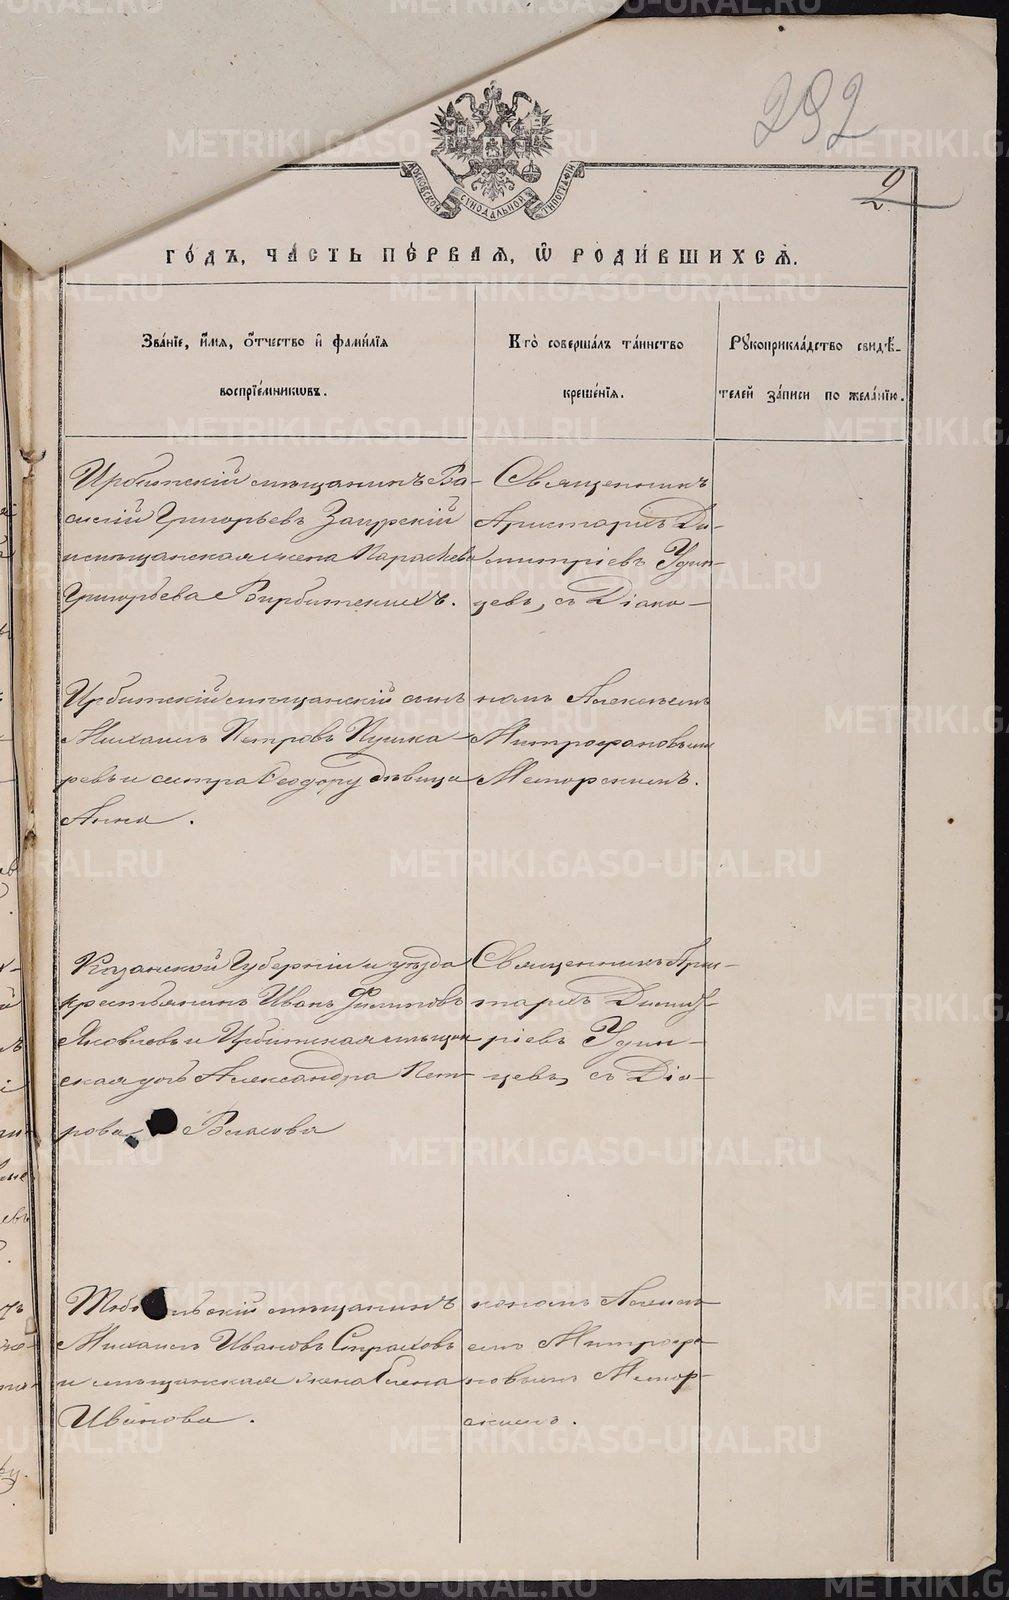 292
2
МОСКОВСКОЙ СѴНОДАЛЬНОЙ ТИПОГРАФІИ
ГО́ДЪ, ЧА́СТЬ ПЕ́РВАЯ, Ѡ҆ РОДИ́ВШИХСѦ.
Зва́нїе, и҆́мя, ѻ҆́тчество и҆ фами́лїя
воспрїе́мникѡвъ.
Кто̀ соверша́лъ та́инство
креще́нїя.
Рꙋкоприкла́дство свидѣ́-
телей за́писи по жела́нїю.
Ирбитскій мѣщанинъ Ва-
силій Григорьевъ Загурскій
и мѣщанская жена Параскева
Григорьева Вирбитскихъ.
Священникъ
Аристархъ Ди-
митріевъ Удин-
цевъ, съ Діако-
Ирбитскій мѣщанскій сынъ
Михаилъ Петровъ Пушка-
ревъ и сестра Ѳеодору дѣвица
Анна.
номъ Алексѣемъ
Митрофановымъ
Меморскимъ.
Казанской Губерніи и уѣзда
крестьянинъ Иванъ Филиповъ
Яковлевъ и Ирбитская мѣщан
ская дочь Александра Пет-
рова Власова
Священникъ Арис-
тархъ Димит-
ріевъ Удин-
цевъ, съ Діа-
Тобольскій мѣщанинъ
Михаилъ Ивановъ Страховъ
и мѣщанская жена Елена
Иванова.
кономъ Алексѣ-
емъ Митрофа-
новымъ Мемор-
скимъ.
METRIKI.GASO-URAL.RU